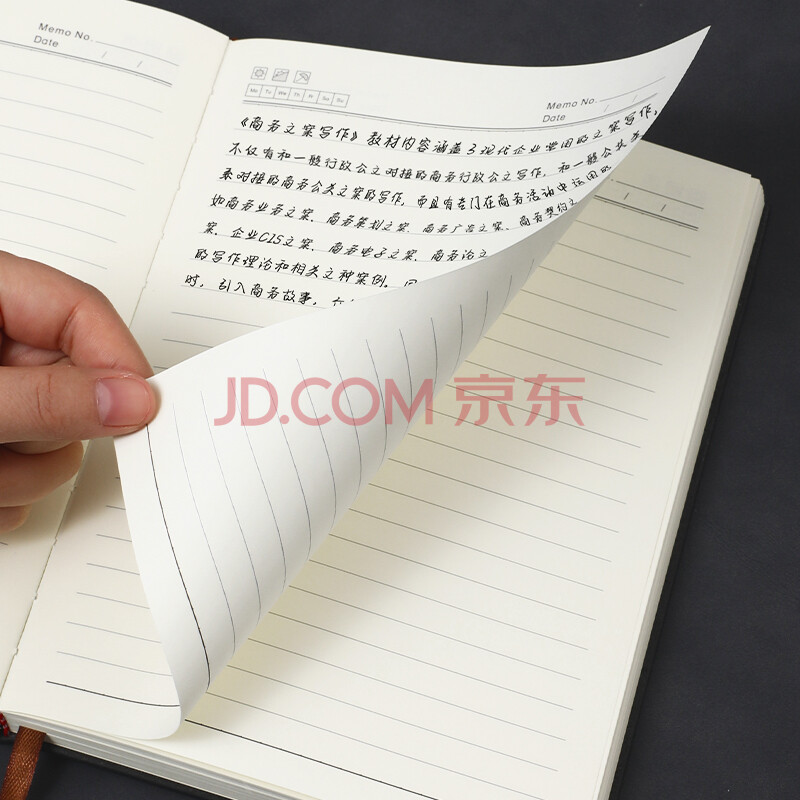 Memo No.
Date / /
Memo No.
Date / /
Mo Tu We Th Fr Sa Su
《商务文案写作》教材内容涵盖了现代企业常用的文案写作,
不仅有和一般行政公文对接的商务行政公文写作,和一般公关
系对接的商务公关文案的写作,而且有专门在商务活动中运用的
如商务业务文案、商务策划文案、商务广告文案、商务契约文
案、企业CIS文案、商务电子文案、商务论文
的写作理论和相关文种案例。
时,引入商务故事,
JD.COM 京东